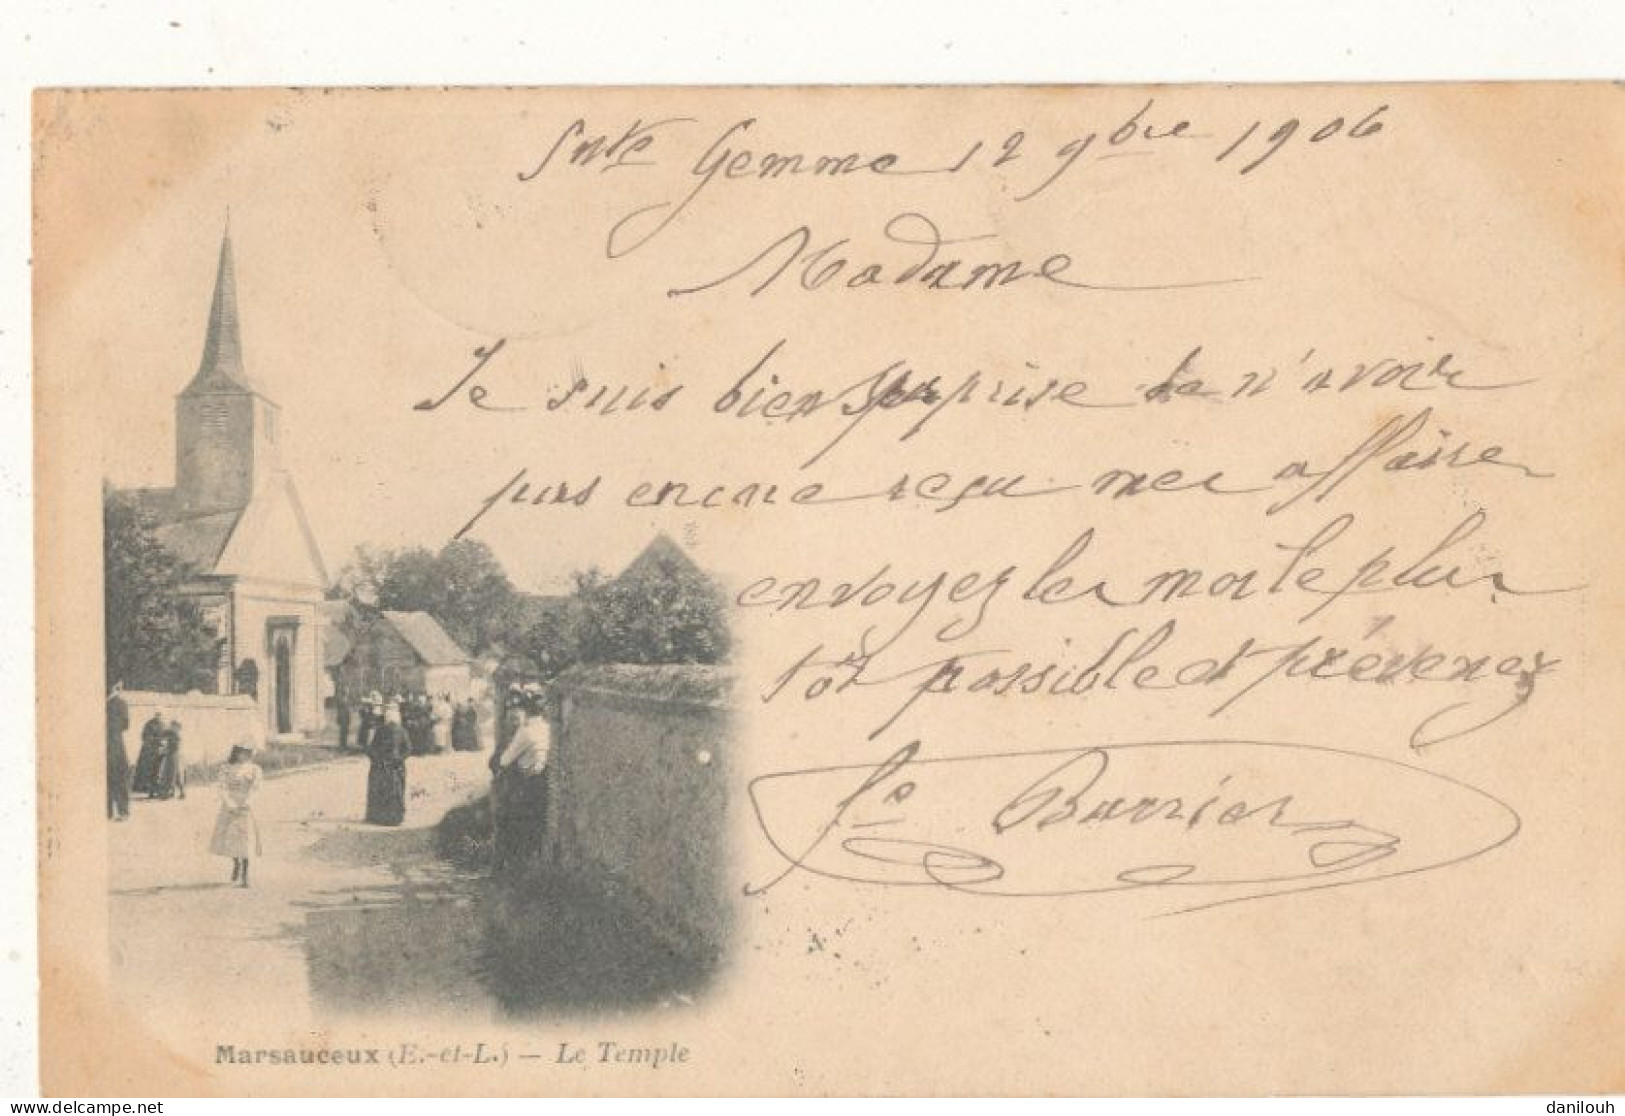 Snte Gemme 12 9bre 1906
Madame
Je suis bien surprise de n'avoir
pas encore reçu mes affaires
envoyez les moi le plus
tôt possible et prévenez
Barrier
Marsauceux (E.-et-L.) — Le Temple
delcampe.net
danilouh